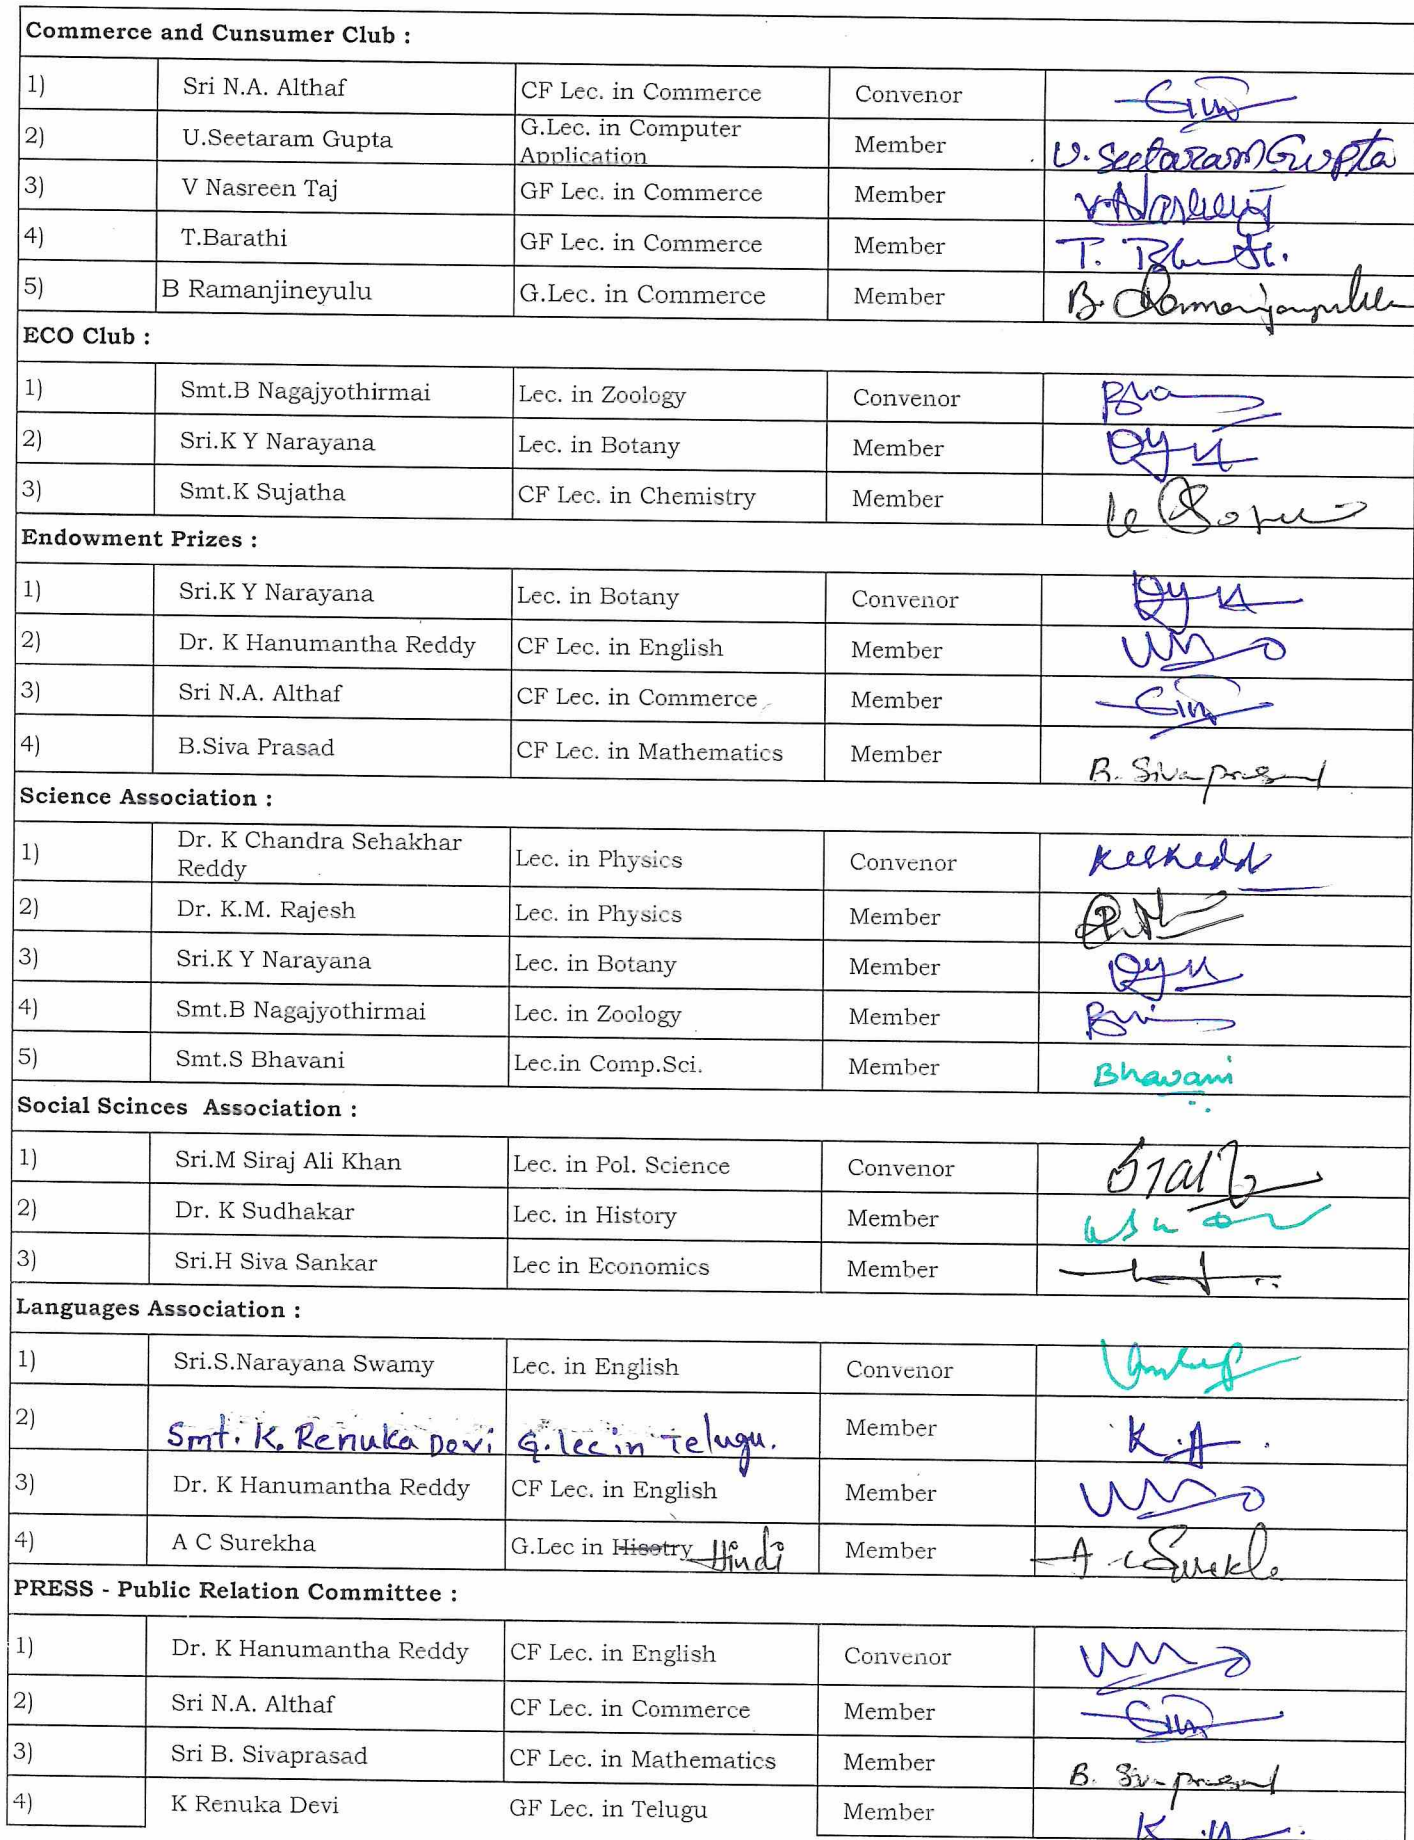 Commerce and Cunsumer Club :
1) Sri N.A. Althaf CF Lec. in Commerce Convenor
2) U.Seetaram Gupta G.Lec. in Computer Application Member U. Seetaram Gupta
3) V Nasreen Taj GF Lec. in Commerce Member
4) T.Barathi GF Lec. in Commerce Member
5) B Ramanjineyulu G.Lec. in Commerce Member
ECO Club :
1) Smt.B Nagajyothirmai Lec. in Zoology Convenor
2) Sri.K Y Narayana Lec. in Botany Member
3) Smt.K Sujatha CF Lec. in Chemistry Member
Endowment Prizes :
1) Sri.K Y Narayana Lec. in Botany Convenor
2) Dr. K Hanumantha Reddy CF Lec. in English Member
3) Sri N.A. Althaf CF Lec. in Commerce Member
4) B.Siva Prasad CF Lec. in Mathematics Member B. Sivaprasad
Science Association :
1) Dr. K Chandra Sehakhar Reddy Lec. in Physics Convenor
2) Dr. K.M. Rajesh Lec. in Physics Member
3) Sri.K Y Narayana Lec. in Botany Member
4) Smt.B Nagajyothirmai Lec. in Zoology Member
5) Smt.S Bhavani Lec.in Comp.Sci. Member Bhavani
Social Scinces Association :
1) Sri.M Siraj Ali Khan Lec. in Pol. Science Convenor
2) Dr. K Sudhakar Lec. in History Member
3) Sri.H Siva Sankar Lec in Economics Member
Languages Association :
1) Sri.S.Narayana Swamy Lec. in English Convenor
2) Smt. K. Renuka Devi G. lec in Telugu. Member
3) Dr. K Hanumantha Reddy CF Lec. in English Member
4) A C Surekha G.Lec in Hisotry Hindi Member A C Surekha
PRESS - Public Relation Committee :
1) Dr. K Hanumantha Reddy CF Lec. in English Convenor
2) Sri N.A. Althaf CF Lec. in Commerce Member
3) Sri B. Sivaprasad CF Lec. in Mathematics Member B. Sivaprasad
4) K Renuka Devi GF Lec. in Telugu Member